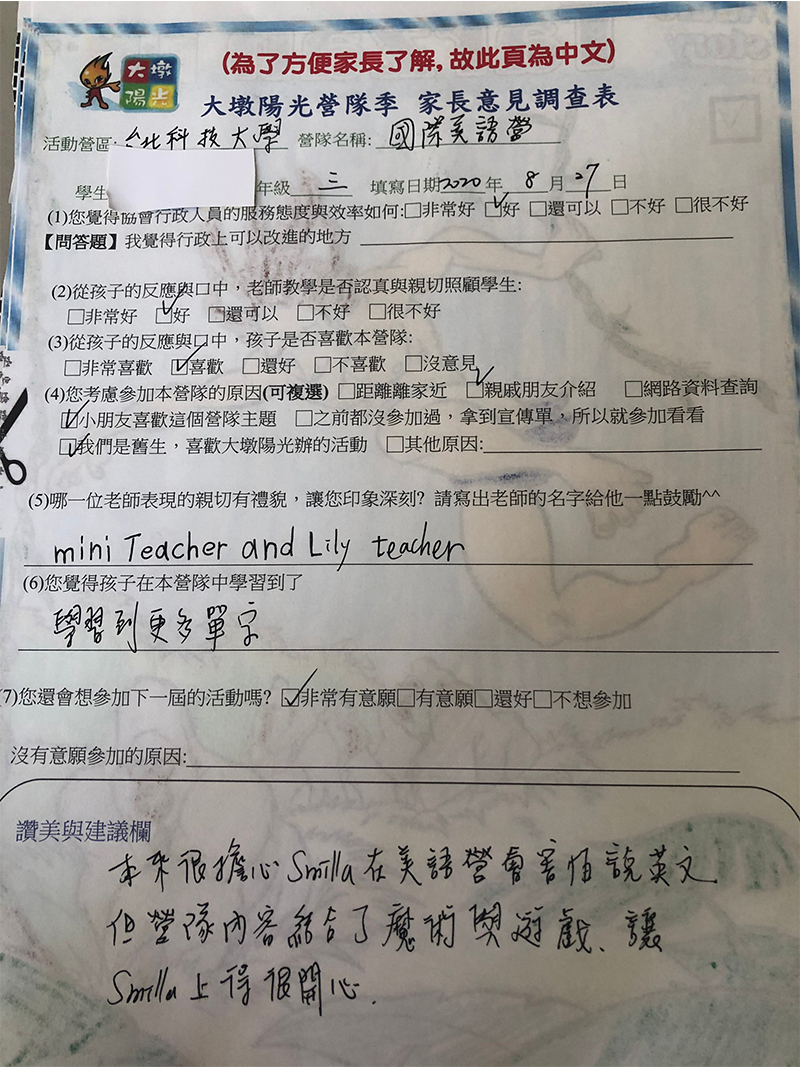 大墩
陽光
(為了方便家長了解,故此頁為中文)
大墩陽光營隊季 家長意見調查表
活動營區:台北科技大學 營隊名稱:國際美語營
學生 年級 三 填寫日期2020年 8 月 27 日
(1)您覺得協會行政人員的服務態度與效率如何:□非常好 ☑好 □還可以 □不好 □很不好
【問答題】我覺得行政上可以改進的地方
(2)從孩子的反應與口中,老師教學是否認真與親切照顧學生:
□非常好 ☑好 □還可以 □不好 □很不好
(3)從孩子的反應與口中,孩子是否喜歡本營隊:
□非常喜歡 ☑喜歡 □還好 □不喜歡 □沒意見
(4)您考慮參加本營隊的原因(可複選) □距離離家近 ☑親戚朋友介紹 □網路資料查詢
☑小朋友喜歡這個營隊主題 □之前都沒參加過,拿到宣傳單,所以就參加看看
☑我們是舊生,喜歡大墩陽光辦的活動 □其他原因:
(5)哪一位老師表現的親切有禮貌,讓您印象深刻? 請寫出老師的名字給他一點鼓勵^^
mini Teacher and Lily teacher
(6)您覺得孩子在本營隊中學習到了
學習到更多單字
(7)您還會想參加下一屆的活動嗎? ☑非常有意願□有意願□還好□不想參加
沒有意願參加的原因:
讚美與建議欄
本來很擔心Smilla在美語營會害怕說英文
但營隊內容結合了魔術與遊戲、讓
Smilla上得很開心.